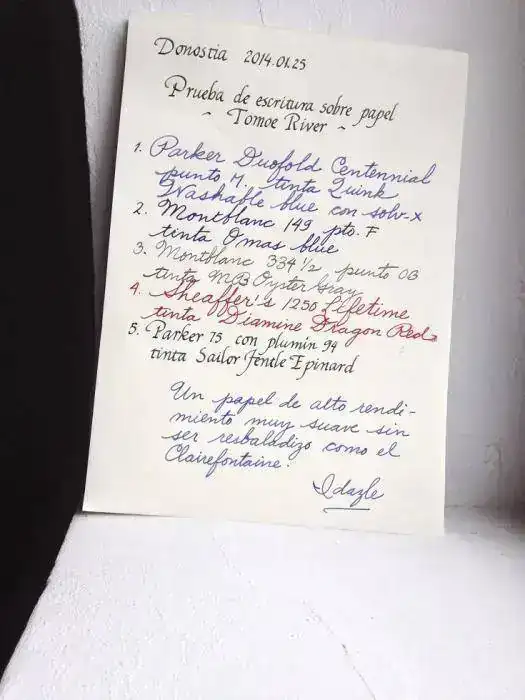 Donostia 2014.01.25
Prueba de escritura sobre papel
~ Tomoe River ~
1. Parker Duofold Centennial
punto M. tinta Quink
Washable blue con solv-x
2. Montblanc 149 pto. F
tinta Omas blue
3. Montblanc 334 1/2 punto OB
tinta MB Oyster Gray
4. Sheaffer's 1250 Lifetime
tinta Diamine Dragon Red
5. Parker 75 con plumín 94
tinta Sailor Jentle Epinard
Un papel de alto rendi-
miento muy suave sin
ser resbaladizo como el
Clairefontaine.
Idazle